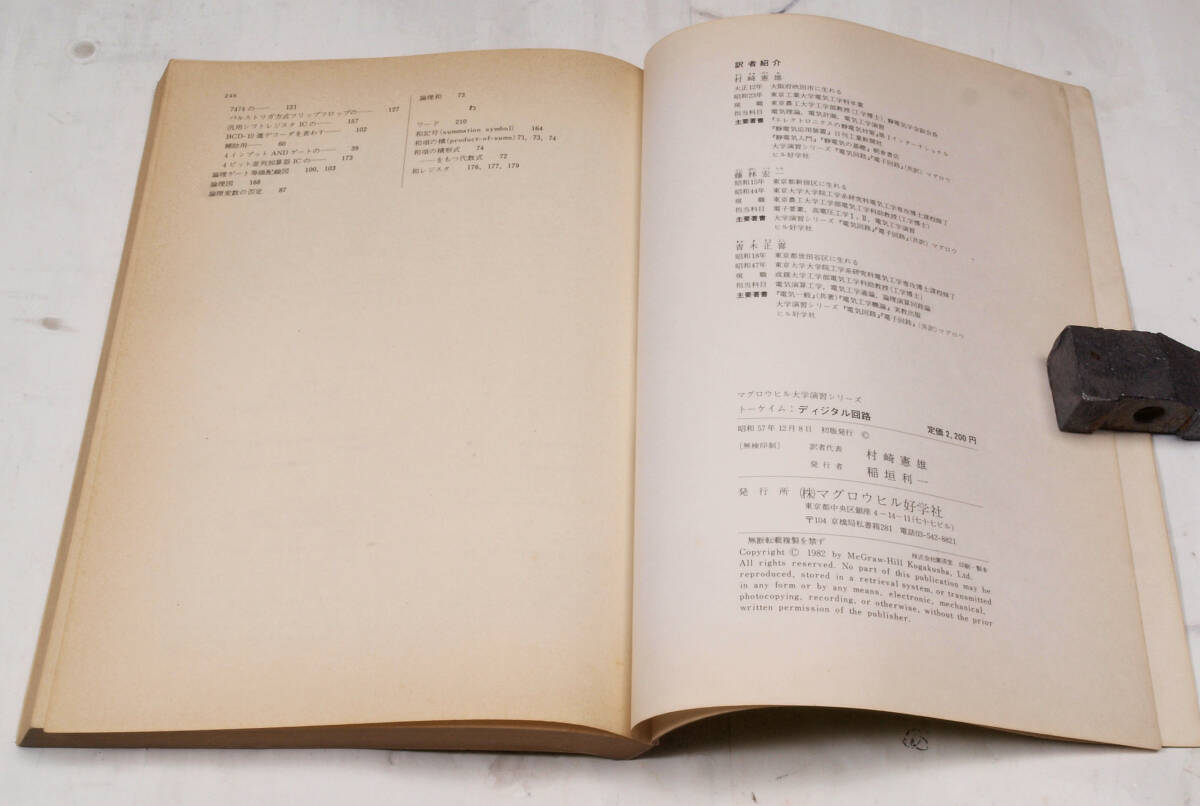 246
7474の—— 121
パルストリガ方式フリップフロップの—— 127
汎用シフトレジスタICの—— 157
BCD-10進デコーダを表わす—— 102
補助用—— 60
4インプットANDゲートの—— 39
4ビット並列加算器ICの—— 173
論理ゲート等価配線図 100, 103
論理図 168
論理変数の否定 87
論理和 73
わ
ワード 210
和記号(summation symbol) 164
和項の積(product-of-sums) 71, 73, 74
和項の積形式 74
——をもつ代数式 72
和レジスタ 176, 177, 179
訳者紹介
村崎憲雄
大正12年 大阪府吹田市に生れる
昭和23年 東京工業大学電気工学科卒業
現職 東京農工大学工学部教授(工学博士), 静電気学会副会長
担当科目 電気理論, 電気計測, 電気工学演習
主要著書 『エレクトロニクスの静電気対策』第1インターナショナル
『静電気応用装置』日刊工業新聞社
『静電気入門』『静電気の基礎』朝倉書店
大学演習シリーズ『電気回路』『電子回路』(共訳) マグロウ
ヒル好学社
藤林宏一
昭和15年 東京都新宿区に生れる
昭和44年 東京大学大学院工学系研究科電気工学専攻博士課程修了
現職 東京農工大学工学部電気工学科助教授(工学博士)
担当科目 電子要素, 高電圧工学I, II, 電気工学演習
主要著書 大学演習シリーズ『電気回路』『電子回路』(共訳) マグロウ
ヒル好学社
青木正喜
昭和18年 東京都世田谷区に生れる
昭和47年 東京大学大学院工学系研究科電気工学専攻博士課程修了
現職 成蹊大学工学部電気工学科助教授(工学博士)
担当科目 電気演算工学, 電気工学通論, 論理演算回路論
主要著書 『電気一般』(共著)『電気工学概論』実教出版
大学演習シリーズ『電気回路』『電子回路』(共訳) マグロウ
ヒル好学社
マグロウヒル大学演習シリーズ
トーケイム:ディジタル回路 定価2,200円
昭和57年12月8日 初版発行 ©
〔無検印制〕 訳者代表 村崎憲雄
発行者 稲垣利一
発行所 ㈱マグロウヒル好学社
東京都中央区銀座4-14-11(七十七ビル)
〒104 京橋局私書箱281 電話03-542-8821
無断転載複製を禁ず 印刷・製本
Copyright © 1982 by McGraw-Hill Kogakusha, Ltd.
All rights reserved. No part of this publication may be
reproduced, stored in a retrieval system, or transmitted
in any form or by any means, electronic, mechanical,
photocopying, recording, or otherwise, without the prior
written permission of the publisher.